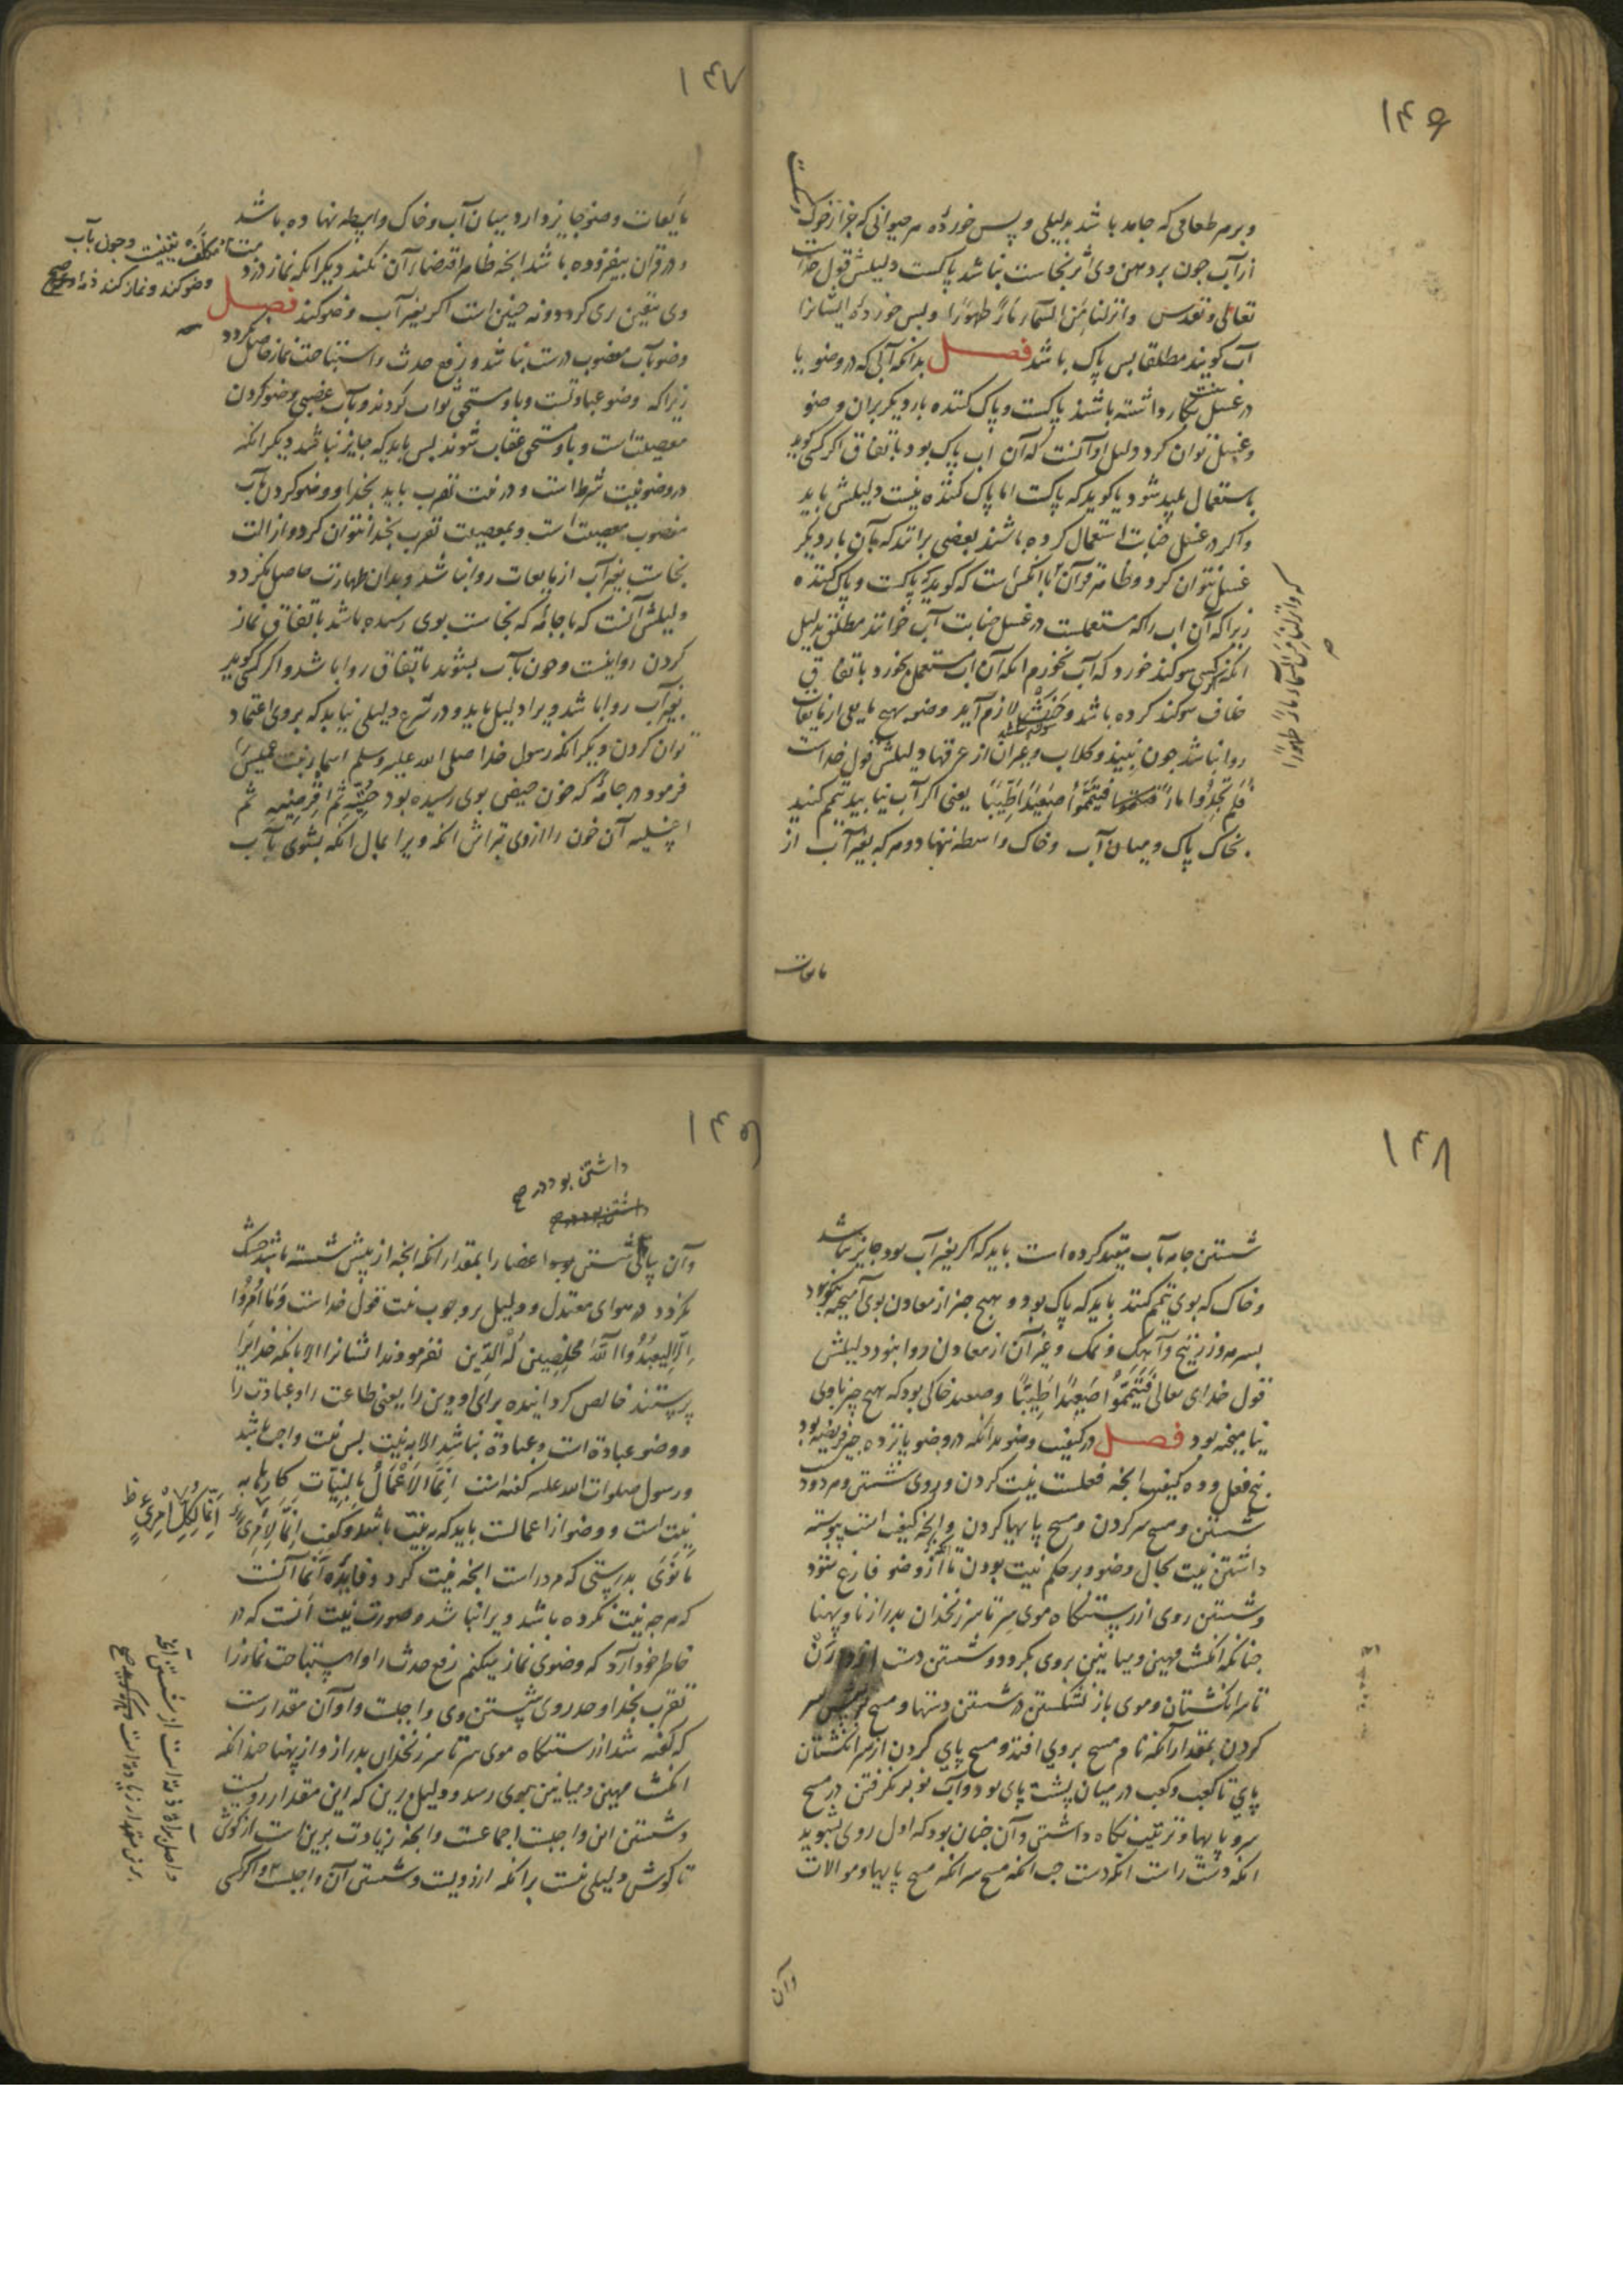 ۱۴۶
و بر هر طعامی که جامد باشد بدلیلی و پس خوردهٔ هر حیوانی که جز از خوک
از آب جون بر دهن وی اثر نجاست نباشد پاکست دلیلش قول خداست
تعالی و تقدس وانزلنا مِنَ السَّمآء مآءً طهورًا و پس خوردهٔ ایشانرا
آب کویند مطلقا پس پاک باشد فصل بدانکه آبی که در وضو یا
در غسل سنت بکار داشته باشند پاکست و پاک کننده بار دیکر بدان وضو
و غسل توان کرد دلیل او آنست که آن اب پاک بود باتفاق اکر کسی کوید
باستعمال پلید شود یا کوید که پاکست اما پاک کننده نیست دلیلش باید
و اکر در غسل جنابت استعمال کرده باشند بعضی برانند که بآن بار دیکر
غسل نتوان کرد و ظاهر قرآن با آنکس است که کوید که پاکست و پاک کننده
زیرا که آن اب را که مستعملست در غسل جنابت آب خوانند مطلق بدلیل
انکه هرکسی سوکند خورد که آب نخورم انکه آن اب مستعمل بخورد باتفاق
خلاف سوکند کرده باشد و حَنْث لازم آید و وضو بهیچ مایعی از مایعات
روا نباشد جون نبیذ و کلاب و جز آن از عرقها دلیلش قول خداست
فَلَم تَجِدُوا مآءً فَتَیَمَّمُوا صَعِیدًا طَیِّبًا یعنی اکر آب نیابید تیمم کنید
بخاک پاک و میان آب و خاک واسطه ننهاد و هر که بغیر آب از
که وانزلنا من السمآء مآءً طهورًا
مایعات
۱۴۷
مایعات وضو جایز دارد میان آب و خاک واسطه نهاده باشد
و در قرآن بیفزوده باشد انجه ظاهر اقتضاء آن نکند دیکر انکه نماز در
وی بیقین بری کردد و نه جنین است اکر بغیر آب وضو کند فصل
وضو بآب مغصوب درست نباشد و رفع حدث و استباحت نماز حاصل نکردد
زیرا که وضو عبادتست و باو مستحق ثواب کردند و بآب غصبی وضو کردن
معصیت است و باو مستحق عقاب شوند پس باید که جایز نباشد دیکر انکه
در وضو نیت شرط است و در نیت تقرب باید بخدا و وضو کردن بآب
مغصوب معصیت است و بمعصیت تقرب بخدا نتوان کرد و ازالت
نجاست بغیر آب از مایعات روا نباشد و بدان طهارت حاصل نکردد
دلیلش آنست که با جامهٔ که نجاست بوی رسیده باشد باتفاق نماز
کردن روا نیست و جون بآب بشوند باتفاق روا باشد و اکر کسی کوید
بغیر آب روا باشد ویرا دلیل باید و در شرع دلیلی نیاید که بر وی اعتماد
توان کردن دیکر انکه رسول خدا صلی الله علیه وسلم اسماء بنت عمیس را
فرمود در جامهٔ که خون حیض بوی رسیده بود حُتِّیه ثُمَّ اقْرِصِیْهِ ثم
اغسلیه آن خون را از وی بتراش انکه ویرا بمال انکه بشوی بآب
وضو کند و نماز کند
۱۴۸
شستن جامه بآب مقید کرده است باید که اکر بغیر آب بود جایز نباشد
و خاک که بوی تیمم کنند باید که پاک بود و هیج جیز از معادن بوی آمیخته نبود
بسرمه و زرنیخ و آهک و نمک و غیر آن از معادن روا نبود دلیلش
قول خدای تعالی فَتَیَمَّمُوا صَعِیدًا طَیِّبًا و صعید خاکی بود که هیج جیز باوی
نیامیخته بود فصل در کیفیت وضو بدانکه در وضو پانزده جیز فریضه بود
پنج فعل و ده کیفیت انجه فعلست نیت کردن و روی شستن و هر دو دست
شستن و مسح سر کردن و مسح پایها کردن و انجه کیفیت است پیوسته
داشتن نیت بحال وضو و بر حکم نیت بودن تا از وضو فارغ شود
و شستن روی از رستنکاه موی سر تا سر زنخدان بدراز نا و پهنا
جنانکه انکشت مهین و میانین بروی بکردد و شستن دست از وارن
تا سر انکشتان و موی باز نشکستن در شستن دستها و مسح پیش سر
کردن بمقدار آنکه نام مسح بر وی افتد و مسح پای کردن از سر انکشتان
پای تا کعب و کعب در میان پشت پای بود و آب نو بر نکرفتن در مسح
سر و پایها و ترتیب نکاه داشتن و آن جنان بود که اول روی بشوید
انکه دست راست انکه دست جب انکه مسح سر انکه مسح پایها و موالات
وآن
۱۴۹
داشتن بود در صح
وآن پیاپی شستن بود اعضا را بمقدار انکه انجه از پیش شسته باشد خشک
نکردد در هوای معتدل و دلیل بر وجوب نیت قول خداست وَمَا اُمِرُوا
اِلَّا لِیَعبُدُوا اللّٰهَ مُخْلِصِینَ لَهُ الدِّینَ نفرمودند ایشانرا الا بانکه خدایرا
پرستند خالص کرداننده برای او دین را یعنی طاعت را و عبادت را
و وضو عبادة است و عبادة نباشد الا به نیت پس نیت واجب باشد
و رسول صلوات الله علیه کفته است اِنَّمَا الاَعْمَالُ بِالنِّیَّاتِ کارها به
نیت است و وضو از اعمالست باید که به نیت باشد و کفت اِنَّمَا لِاِمْرِئٍ
مَا نَوَی بدرستی که مرد راست انجه نیت کرد و فایدهٔ اَنّما آنست
که هر جه نیت نکرده باشد ویرا نباشد و صورت نیت آنست که در
خاطر خود آرد که وضوی نماز میکنم رفع حدث را و استباحت نماز را
تقرب بخدا و حد روی شستن وی واجبست و او آن مقدارست
که کفته شد از رستنکاه موی سر تا سر زنخدان بدراز و از پهنا جندانکه
انکشت مهین و میانین بوی رسد و دلیل برین که این مقدار رویست
و شستن این واجبست اجماعست و انجه زیادت برین است از کوش
تا کوش دلیلی نیست بر انکه از رویست و شستن آن واجبست و اکر کسی
اِنَّمَا لِکُلِّ امْرِئٍ ظ